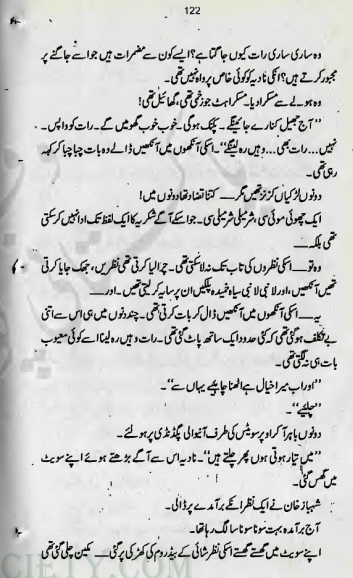 122
وہ ساری ساری رات کیوں جاگتا ہے؟ ایسے کون سے مضمرات ہیں جو اسے جاگنے پر
مجبور کرتے ہیں؟ انکی نادیہ کو کوئی خاص پرواہ نہیں تھی۔
وہ ہولے سے مسکرا دیا۔ مسکراہٹ جو زخمی تھی، گھائل تھی!
"آج جھیل کنارے جائینگے۔ پکنک ہوگی۔ خوب خوب گھومیں گے۔ رات کو واپس۔
نہیں... رات بھی... وہیں رہ لینگے"۔ اسکی آنکھوں میں آنکھیں ڈالے وہ بات چبا چبا کر کہہ
رہی تھی۔
دونوں لڑکیاں کزنز تھیں مگر — کتنا تضاد تھا دونوں میں!
ایک چھوئی موئی سی، شرمیلی شرمیلی سی۔ جو اسکے آگے شکریہ کا ایک لفظ تک ادا نہیں کر سکتی
تھی بلکہ —
وہ تو — اسکی نظروں کی تاب تک نہ لا سکتی تھی۔ چرا لیا کرتی تھی نظریں، جھک جایا کرتی
تھیں آنکھیں، اور لانبی لانبی سیاہ خمیدہ پلکیں ان پر سایہ کر لیتی تھیں۔ اور —
یہ — اسکی آنکھوں میں آنکھیں ڈال کر بات کرتی تھی۔ چند دنوں میں ہی اس سے اتنی
بے تکلف ہو گئی تھی کہ کئی حدود ایک ساتھ پاٹ گئی تھی۔ رات وہیں رہ لینا اسے کوئی معیوب
بات ہی نہ لگتی تھی۔
"اور اب میرا خیال ہے اٹھنا چاہیے یہاں سے"۔
"چلیے"۔
دونوں باہر آ کر اوپر سویٹس کی طرف آنیوالی پگڈنڈی پر ہو لئے۔
"میں تیار ہوتی ہوں پھر چلتے ہیں"۔ نادیہ اس سے آگے بڑھتے ہوئے اپنے سویٹ
میں گھس گئی۔
شہباز خان نے ایک نظر انکے برآمدے پر ڈالی۔
آج برآمدہ بہت سونا سونا سا لگ رہا تھا۔
اپنے سویٹ میں گھستے گھستے اسکی نظر شانی کے بیڈروم کی کھڑکی پر گئی — مکین چلی گئی تھی
CIETY.COM